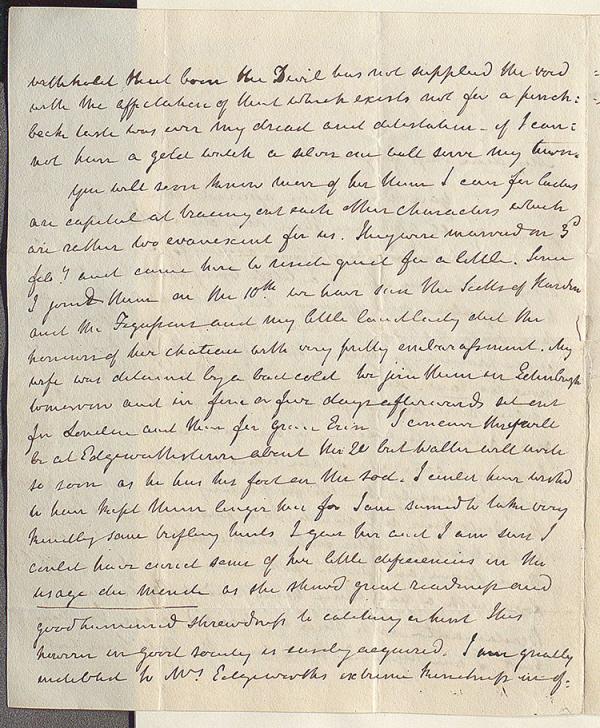 withhold that boon the Devil has not supplied the void
with the affectation of that which exists not for a pinch=
beck taste was ever my dread and detestation - if I can=
not have a gold watch a silver one will serve my turn.
You will soon know more of her than I can for ladies
are capital at tracing out each other characters which
are rather two evanescent for us. They were married on 3d
feby and came here to reside quiet for a little. Since
I joind them on the 10th we have seen the Scotts of Harden
and the Fergusons and my little landlady did the
honours of her chateau with very pretty embarassment. My
wife was detained by a bad cold We join them in Edinburgh
tomorrow and in five or four days afterwards set out
for London and then for green Erin I conceive they will
be at Edgeworthstown about the 20 but Walter will write
so soon as he has his foot on the sod. I could have wishd
to have kept them longer here for I am seemd to take very
kindly some trifling hints I gave her and I am sure I
could have cured some of her little deficiencies in the
usage du monde as she shewd great readiness and
goodhumoured shrewdness to catching a hint This
however in good society is easily acquired. I am greatly
indebted to Mrs Edgeworths extreme kindness in of=